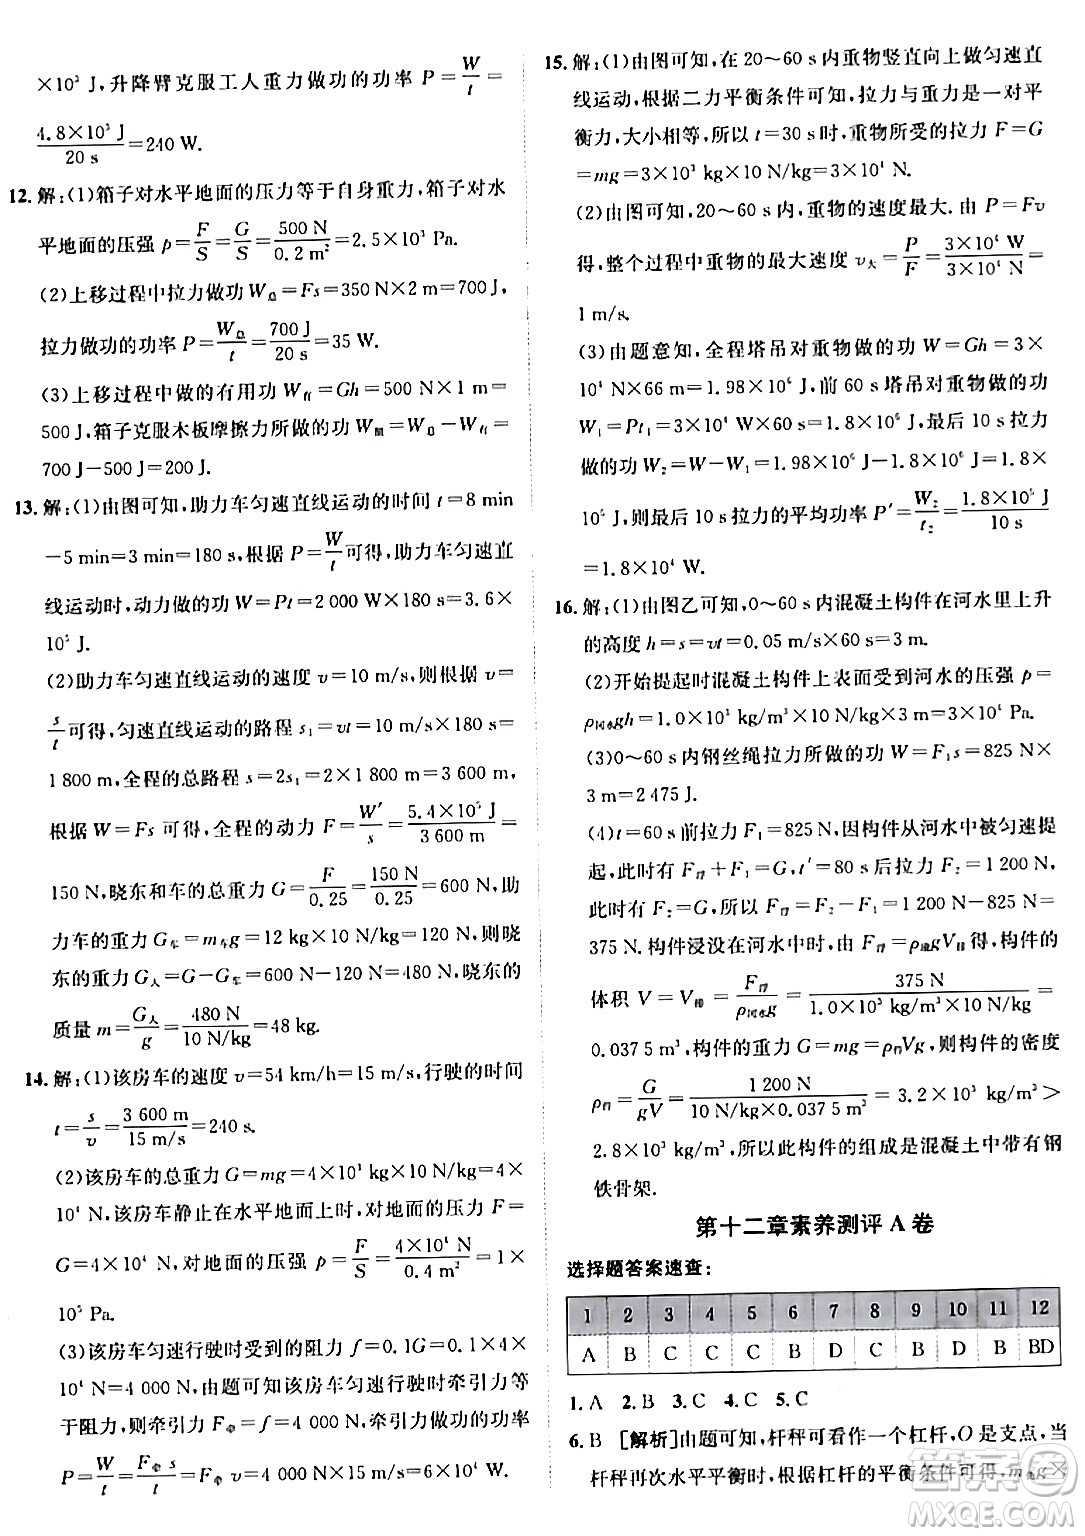 ×10³ J,升降臂克服工人重力做功的功率 P=W/t=
4.8×10³ J/20 s=240 W.
12.解:(1)箱子对水平地面的压力等于自身重力,箱子对水
平地面的压强 p=F/S=G/S=500 N/0.2 m²=2.5×10³ Pa.
(2)上移过程中拉力做功 W总=Fs=350 N×2 m=700 J,
拉力做功的功率 P=W总/t=700 J/20 s=35 W.
(3)上移过程中做的有用功 W有=Gh=500 N×1 m=
500 J,箱子克服木板摩擦力所做的功 W额=W总-W有=
700 J-500 J=200 J.
13.解:(1)由图可知,助力车匀速直线运动的时间 t=8 min
-5 min=3 min=180 s,根据 P=W/t可得,助力车匀速直
线运动时,动力做的功 W=Pt=2 000 W×180 s=3.6×
10⁵ J.
(2)助力车匀速直线运动的速度 v=10 m/s,则根据 v=
s/t可得,匀速直线运动的路程 s₁=vt=10 m/s×180 s=
1 800 m,全程的总路程 s=2s₁=2×1 800 m=3 600 m,
根据 W=Fs 可得,全程的动力 F=W′/s=5.4×10⁵ J/3 600 m=
150 N,晓东和车的总重力 G=F/0.25=150 N/0.25=600 N,助
力车的重力 G车=m车g=12 kg×10 N/kg=120 N,则晓
东的重力 G人=G-G车=600 N-120 N=480 N,晓东的
质量 m=G人/g=480 N/10 N/kg=48 kg.
14.解:(1)该房车的速度 v=54 km/h=15 m/s,行驶的时间
t=s/v=3 600 m/15 m/s=240 s.
(2)该房车的总重力 G=mg=4×10³ kg×10 N/kg=
4×10⁴ N,该房车静止在水平地面上时,对地面的压力 F=
G=4×10⁴ N,该房车对水平地面的压强 p=F/S=4×10⁴ N/0.4 m²=
10⁵ Pa.
(3)该房车匀速行驶时受到的阻力 f=0.1G=0.1×4×
10⁴ N=4 000 N,由题可知该房车匀速行驶时牵引力等
于阻力,则牵引力 F牵=f=4 000 N,牵引力做功的功率
P=W/t=F牵s/t=F牵v=4 000 N×15 m/s=6×10⁴ W.
15.解:(1)由图可知,在 20~60 s 内重物竖直向上做匀速直
线运动,根据二力平衡条件可知,拉力与重力是一对平
衡力,大小相等,所以 t=30 s 时,重物所受的拉力 F=G
=mg=3×10³ kg×10 N/kg=3×10⁴ N.
(2)由图可知,20~60 s 内,重物的速度最大.由 P=Fv
得,整个过程中重物的最大速度 v大=P/F=3×10⁴ W/3×10⁴ N=
1 m/s.
(3)由题意知,全程塔吊对重物做的功 W=Gh=3×
10⁴ N×66 m=1.98×10⁶ J,前 60 s 塔吊对重物做的功
W₁=Pt₁=3×10⁴ W×60 s=1.8×10⁶ J,最后 10 s 拉力
做的功 W₂=W-W₁=1.98×10⁶ J-1.8×10⁶ J=1.8×
10⁵ J,则最后 10 s 拉力的平均功率 P′=W₂/t₂=1.8×10⁵ J/10 s
=1.8×10⁴ W.
16.解:(1)由图乙可知,0~60 s 内混凝土构件在河水里上升
的高度 h=s=vt=0.05 m/s×60 s=3 m.
(2)开始提起时混凝土构件上表面受到河水的压强 p=
ρ河水gh=1.0×10³ kg/m³×10 N/kg×3 m=3×10⁴ Pa.
(3)0~60 s 内钢丝绳拉力所做的功 W=F₁s=825 N×
3 m=2 475 J.
(4)t=60 s 前拉力 F₁=825 N,因构件从河水中被匀速提
起,则 F浮+F₁=G,t′=80 s 后拉力 F₂=1 200 N,
此时有 F₂=G,所以 F浮=F₂-F₁=1 200 N-825 N=
375 N.构件浸没在河水中时,由 F浮=ρ液gV排得,构件的
体积 V=V排=F浮/ρ河水g=375 N/1.0×10³ kg/m³×10 N/kg=
0.037 5 m³,构件的重力 G=mg=ρ构Vg,则构件的密度
ρ构=G/gV=1 200 N/10 N/kg×0.037 5 m³=3.2×10³ kg/m³>
2.8×10³ kg/m³,所以此构件的组成是混凝土中带有钢
铁骨架.
第十二章素养测评 A 卷
选择题答案速查:
1 2 3 4 5 6 7 8 9 10 11 12
A B C C C B D C B D BC BD
1.A 2.B 3.C 4.C 5.C
6.B [解析]由题可知,杆秤可看作一个杠杆,O 是支点,当
杆秤再次水平平衡时,根据杠杆的平衡条件可得,m盘g×
答案圈
MXQE.COM